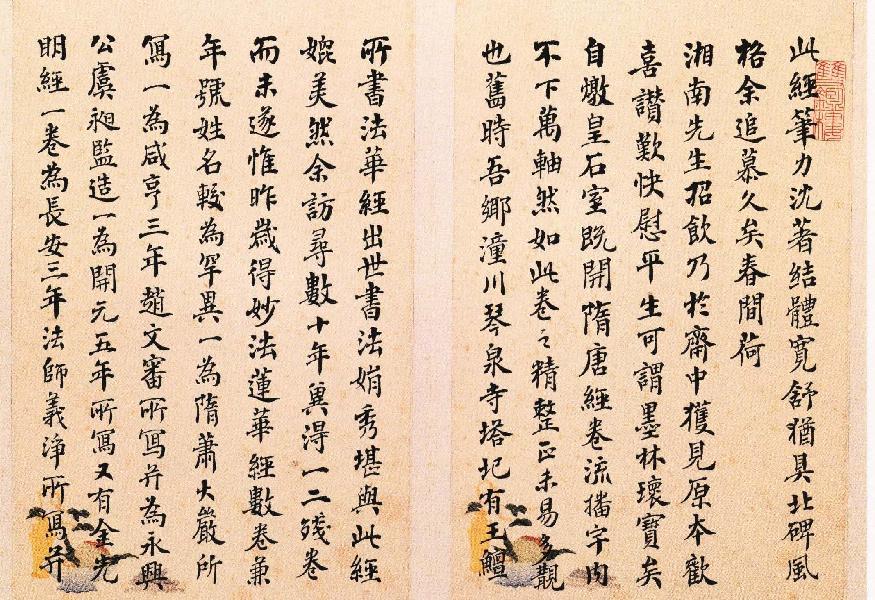 此經筆力沈著結體寬舒猶具北碑風
格余追慕久矣春間荷
湘南先生招飲乃於齋中獲見原本歡
喜讚歎快慰平生可謂墨林瓌寶矣
自燉皇石室既開隋唐經卷流播宇內
不下萬軸然如此卷之精整正未易多覯
也舊時吾鄉潼川琴泉寺塔圮有王鱣
所書法華經出世書法娟秀堪與此經
媲美然余訪尋數十年冀得一二殘卷
而未遂惟昨歲得妙法蓮華經數卷兼
年號姓名較為罕異一為隋蕭大嚴所
寫一為咸亨三年趙文審所寫并為永興
公虞昶監造一為開元五年所寫又有金光
明經一卷為長安三年法師義淨所寫并